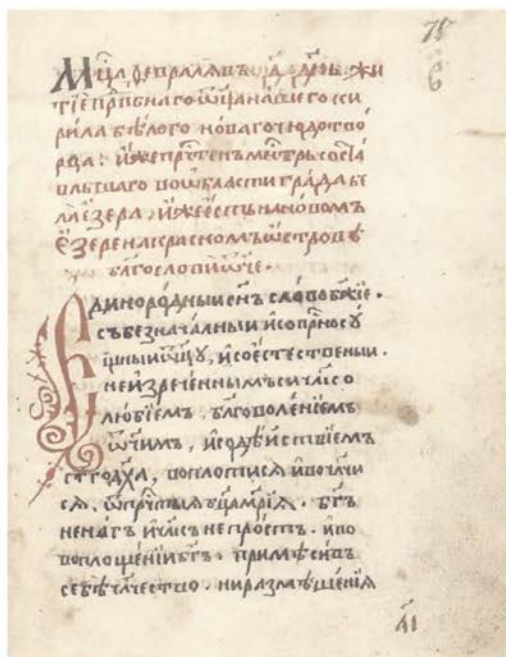 75
Мц҃а февраля въ д҃ д҃нь. жи
тїе прп҃бнаго ѿц҃а нашего ки
рила бѣлого новаго чюдотво
рца. иже прч҃тенъ
по ѡбласти града бѣ
ла езера, иже есть на новомъ
езере на красномъ ѡстровѣ
бл҃гослови ѿч҃е.
Единородныи сн҃ъ слово бж҃їе.
събезначалныи и соприсносу
щныи ѿц҃у, и соестественыи.
неизреченнымъ си чл҃ко
любїемъ. бл҃говоленїемъ
ѿчимъ, и содѣиствїемъ
ст҃го дх҃а, воплотися и вочл҃чи
ся. ѿ прч҃тыя бц҃а мр҃їя. бг҃ъ
не нагъ и чл҃къ не простъ. и по
воплощенїи бг҃ъ. примѣсивъ
себѣ чл҃чество. ни размѣшенїя